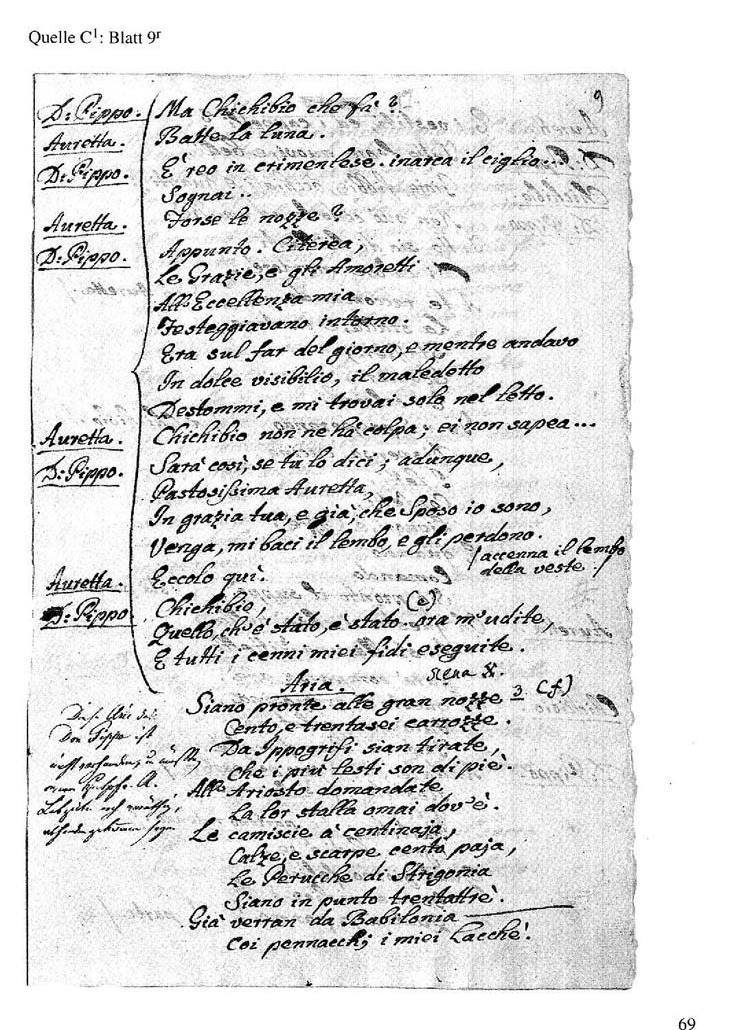 Quelle C¹: Blatt 9ʳ
9
D: Pippo. Ma Chichibio che fà?
Auretta. Batte la luna.
D: Pippo. È reo in crimenlese. inarca il ciglio...
Sognai..
Auretta. Forse le nozze?
D: Pippo. Appunto. Citerea,
Le Grazie, e gli Amoretti
All'Eccellenza mia
Festeggiavano intorno.
Era sul far del giorno, e mentre andavo
In dolce visibilio, il maledetto
Destommi, e mi trovai solo nel letto.
Auretta. Chichibio non ne hà colpa; ei non sapea...
D: Pippo. Sarà così, se tu lo dici; adunque,
Pastosissima Auretta,
In grazia tua, e già, che Sposo io sono,
Venga, mi baci il lembo, e gli perdono.
/accenna il lembo
della veste./
Auretta. Eccolo quì.
D: Pippo. Chichibio, (e)
Quello, ch'è stato, è stato. ora m'udite,
E tutti i cenni miei fidi eseguite.
Aria. Scena X.
Siano pronte alle gran nozze 3 (f)
Cento, e trentasei carrozze.
Da Ippogrifi sian tirate,
Che i più lesti son di piè.
All'Ariosto domandate
La lor stalla omai dov'è.
Le camiscie à centinaja,
Calze, e scarpe cento paja,
Le Perucche di Strigonia
Siano in punto trentattrè.
Già verran da Babilonia
Coi pennacchj i miei Lacchè.
Diese Arie des
Don Pippo ist
nicht vorhanden, u müßte
69